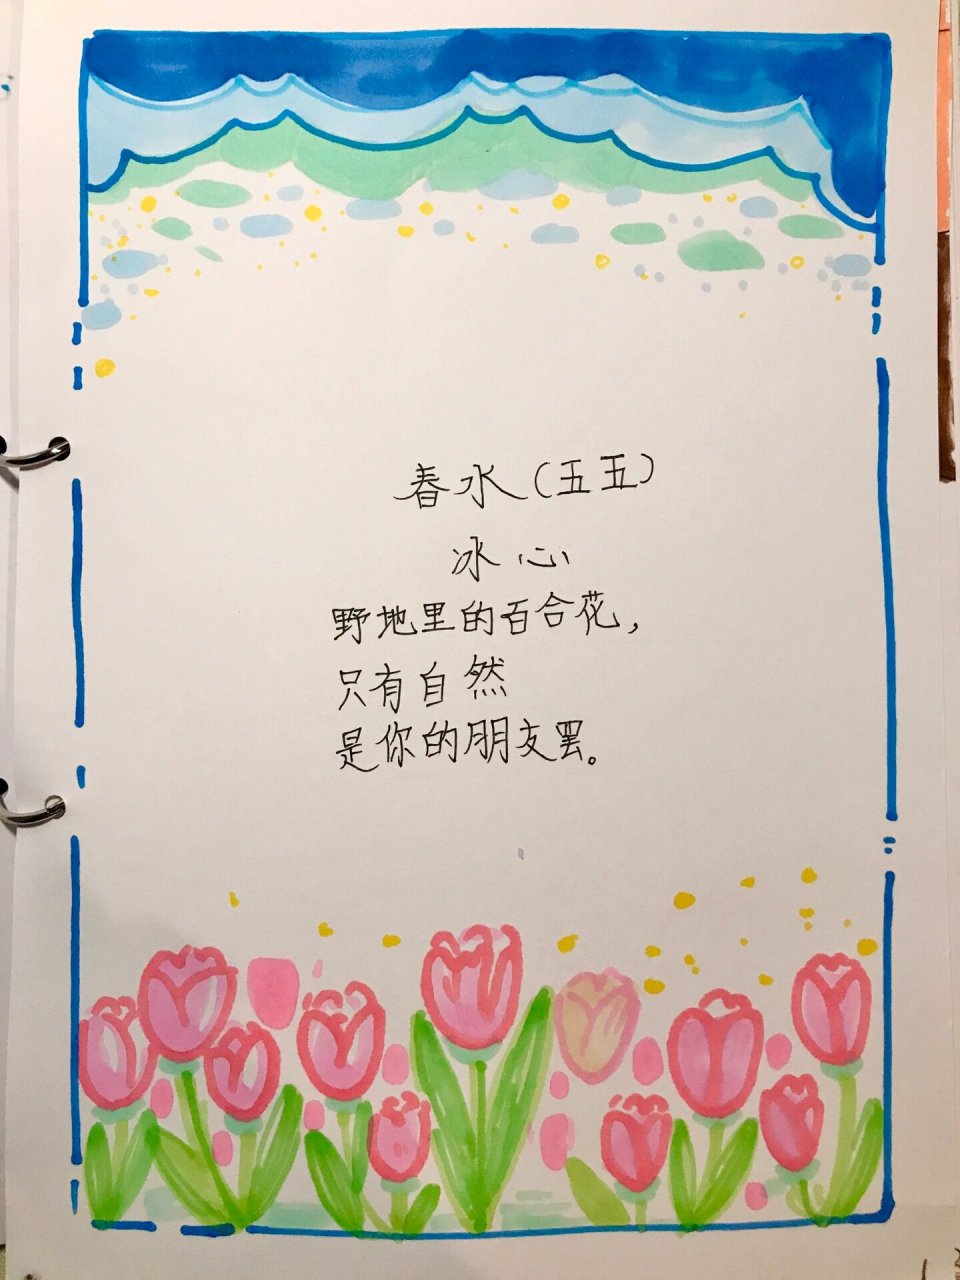 春水(五五)
冰心
野地里的百合花,
只有自然
是你的朋友罢。